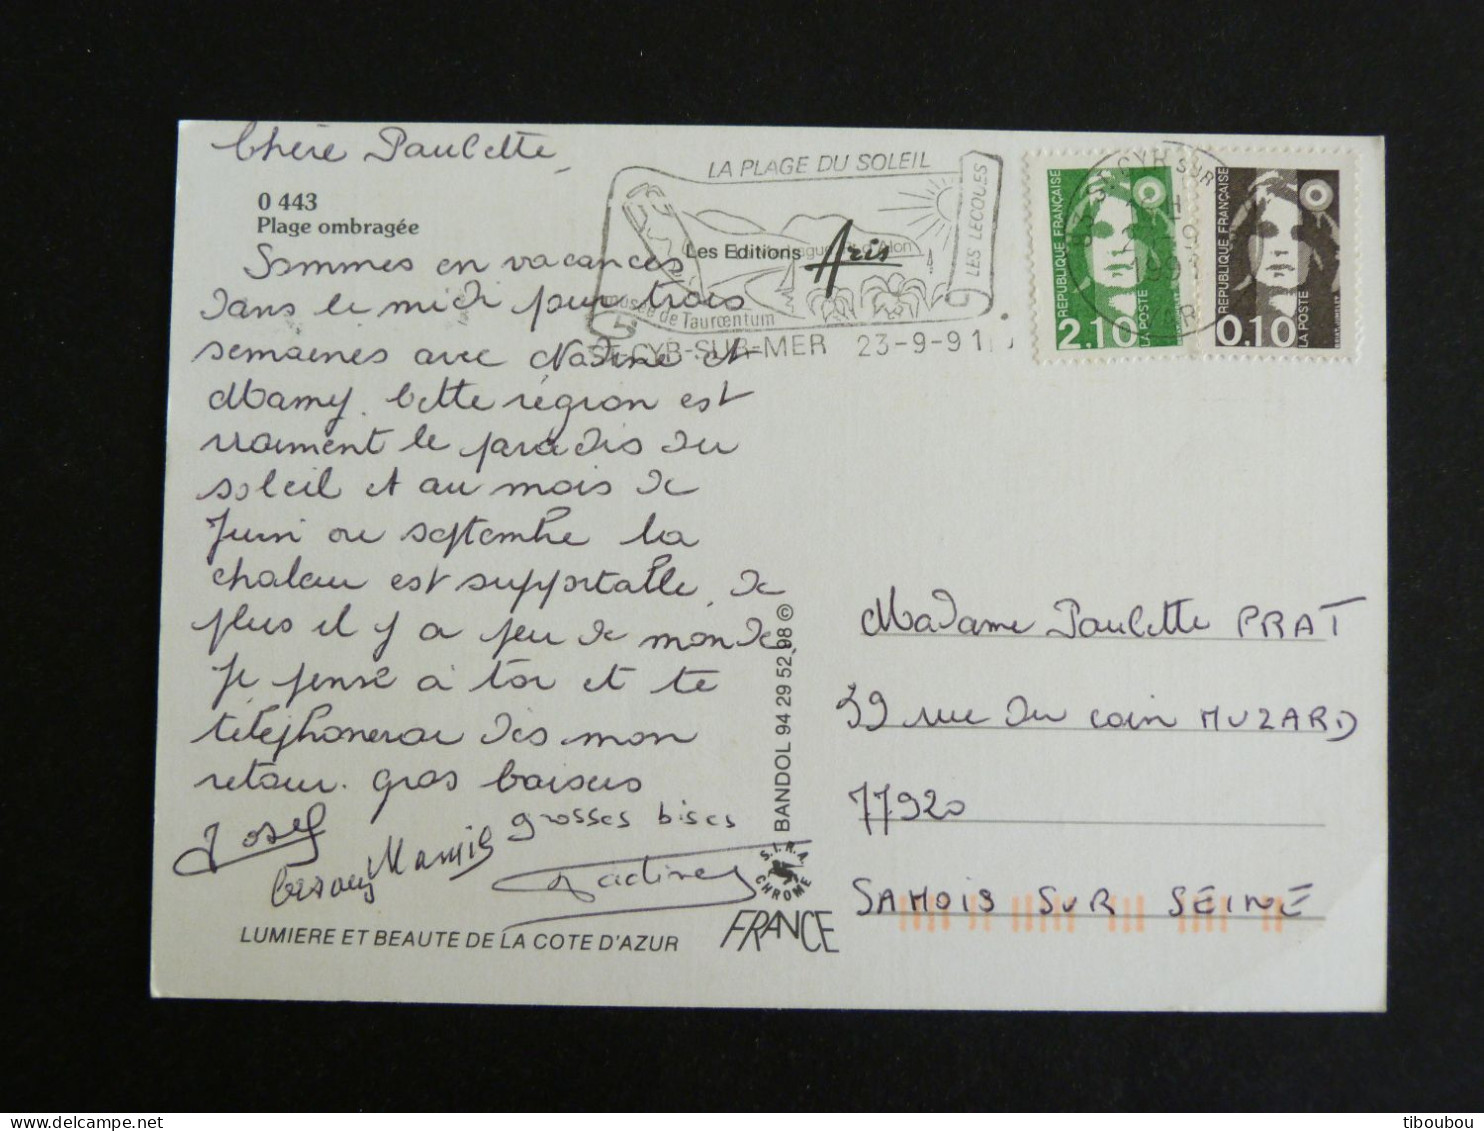 Chère Paulette
0 443
Plage ombragée
Sommes en vacances
dans le midi pour trois
semaines avec Nadine et
Mamy. Cette région est
vraiment le paradis du
soleil et au mois de
Juin ou septembre la
chaleur est supportable, de
plus il y a peu de monde
Je pense à toi et te
téléphonerai dès mon
retour. gros baisers
Josef
grosses bises
Mamie
Nadine
LUMIERE ET BEAUTE DE LA COTE D'AZUR
LA PLAGE DU SOLEIL
LES LECQUES
Les Editions Aris
Musée de Tauroentum
ST-CYR-SUR-MER 23-9-91
BANDOL 94 29 52 98 ©
S.I.R.A.
CHROME
FRANCE
REPUBLIQUE FRANÇAISE
2.10
LA POSTE
REPUBLIQUE FRANÇAISE
0.10
LA POSTE
Madame Paulette PRAT
39 rue du coin MUZARD
77920
SAMOIS SUR SEINE
tiboubou